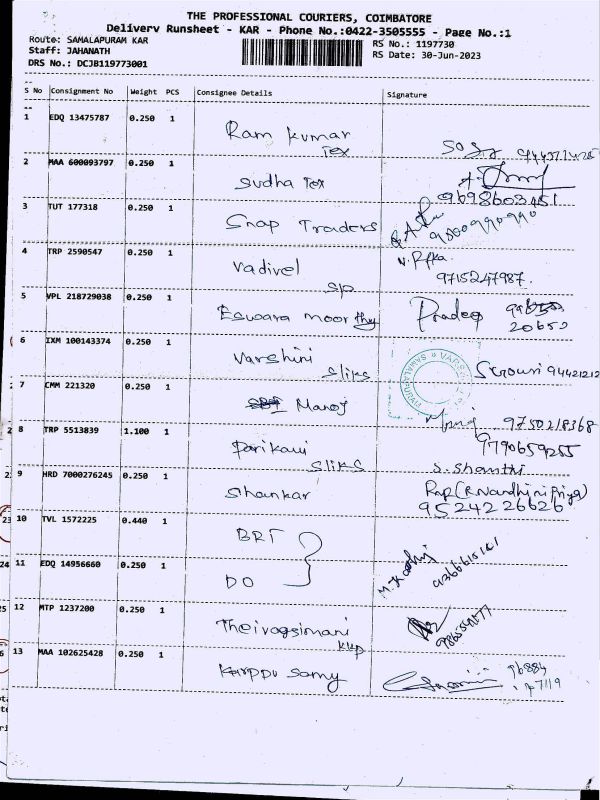 THE PROFESSIONAL COURIERS, COIMBATORE
Delivery Runsheet - KAR - Phone No.:0422-3505555 - Page No.:1
Route: SAMALAPURAM KAR
RS No.: 1197730
Staff: JAHANATH
RS Date: 30-Jun-2023
DRS No.: DCJB119773001
S No Consignment No Weight PCS Consignee Details Signature
1 EDQ 13475787 0.250 1 Ram kumar Tex
2 MAA 600093797 0.250 1 Sudha Tex 9698603451
3 TUT 177318 0.250 1 Snap Traders 9800990990
4 TRP 2590547 0.250 1 Vadivel 9715247987.
5 VPL 218729038 0.250 1 Eswara moorthy Pradeep 20652
6 IXM 100143374 0.250 1 Varshini sliks 94421212
7 CMM 221320 0.250 1 Manoj Manoj 9750218368
8 TRP 5513839 1.100 1 sliks 9790659255
S. Shanthi
9 HRD 7000276245 0.250 1 Shankar Rnp(R.Nandhini Priya)
9524226626
10 TVL 1572225 0.440 1 BRT
11 EDQ 14956660 0.250 1 DO
12 MTP 1237200 0.250 1 Theivagsimani
13 MAA 102625428 0.250 1 Karppu Samy